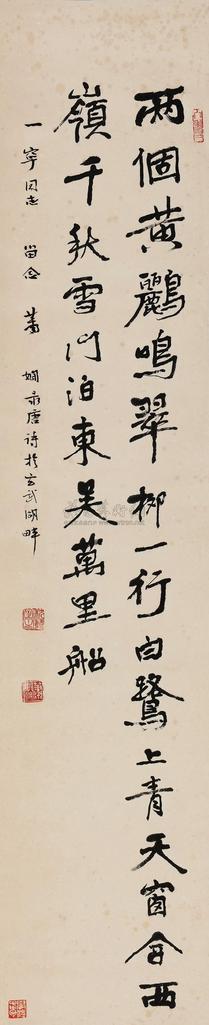 两個黄鸝鳴翠柳一行白鷺上青天窗含西
嶺千秋雪门泊東吴萬里船
一寧同志 留念 萧嫻录唐诗於玄武湖畔